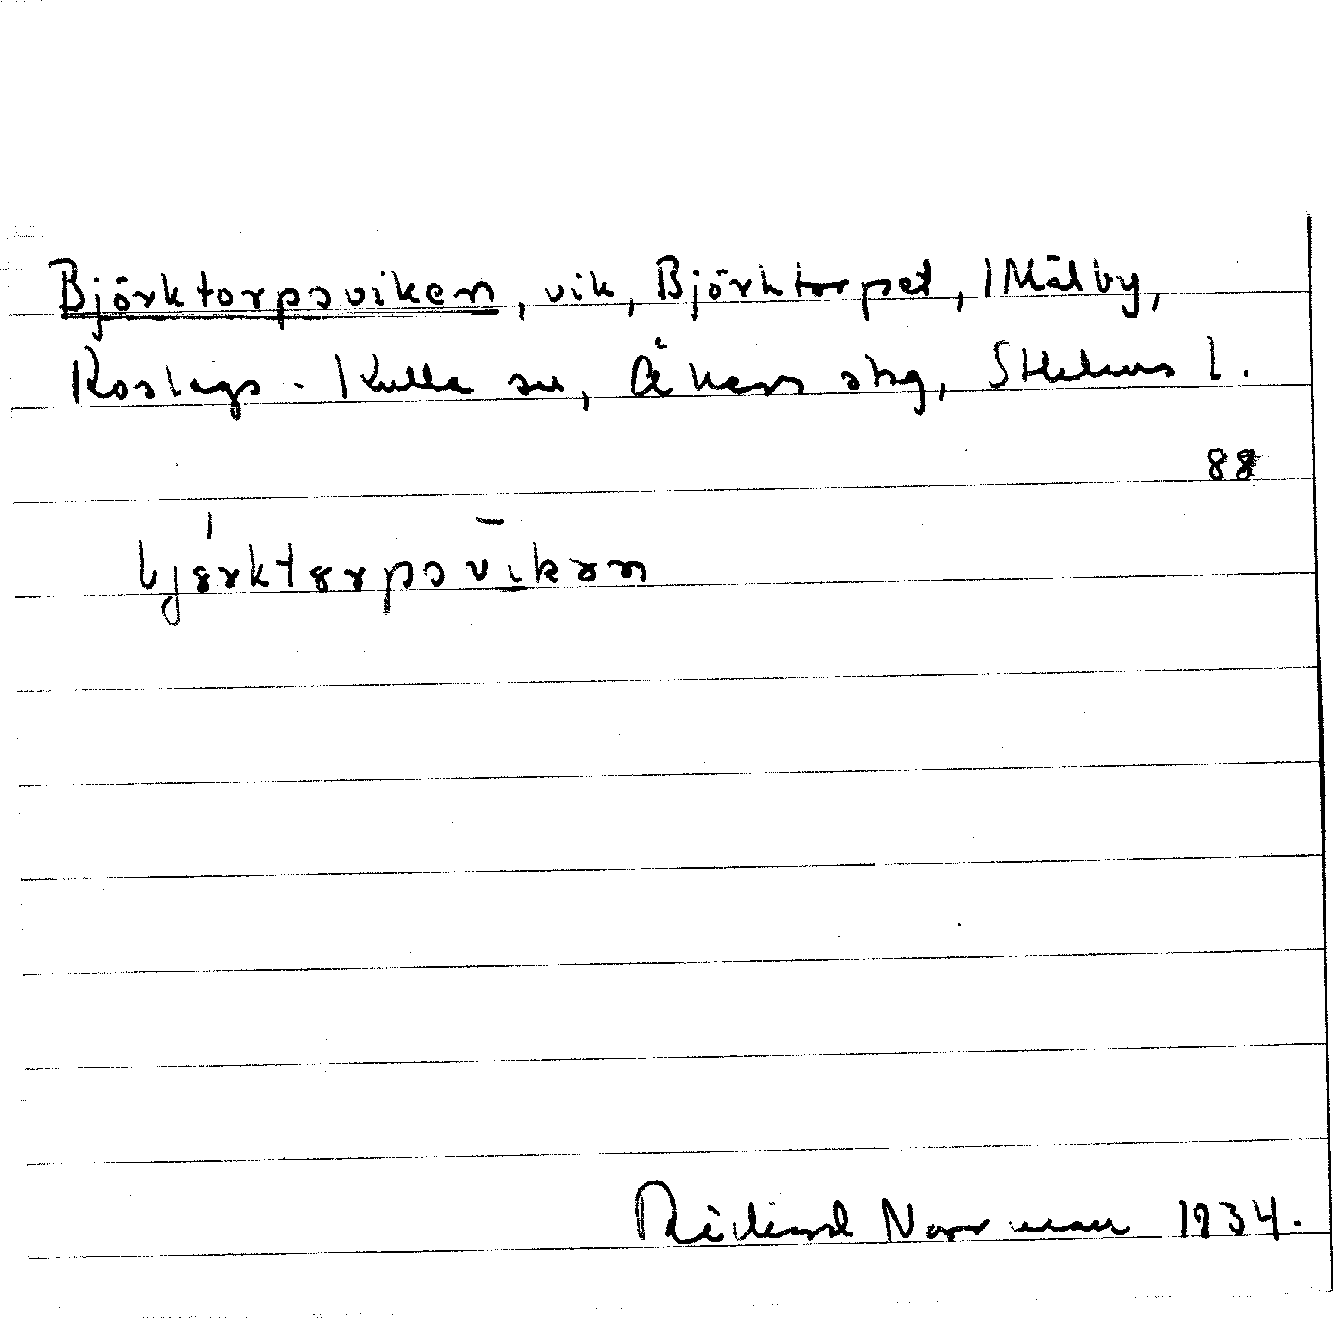 Björktorpsviken, vik, Björktorpet, 1 Mälby,
Roslags-Kulla sn, Åkers skg, Sthlms l.
88
bjørktørpsvikən
Rickard Norrman 1934.